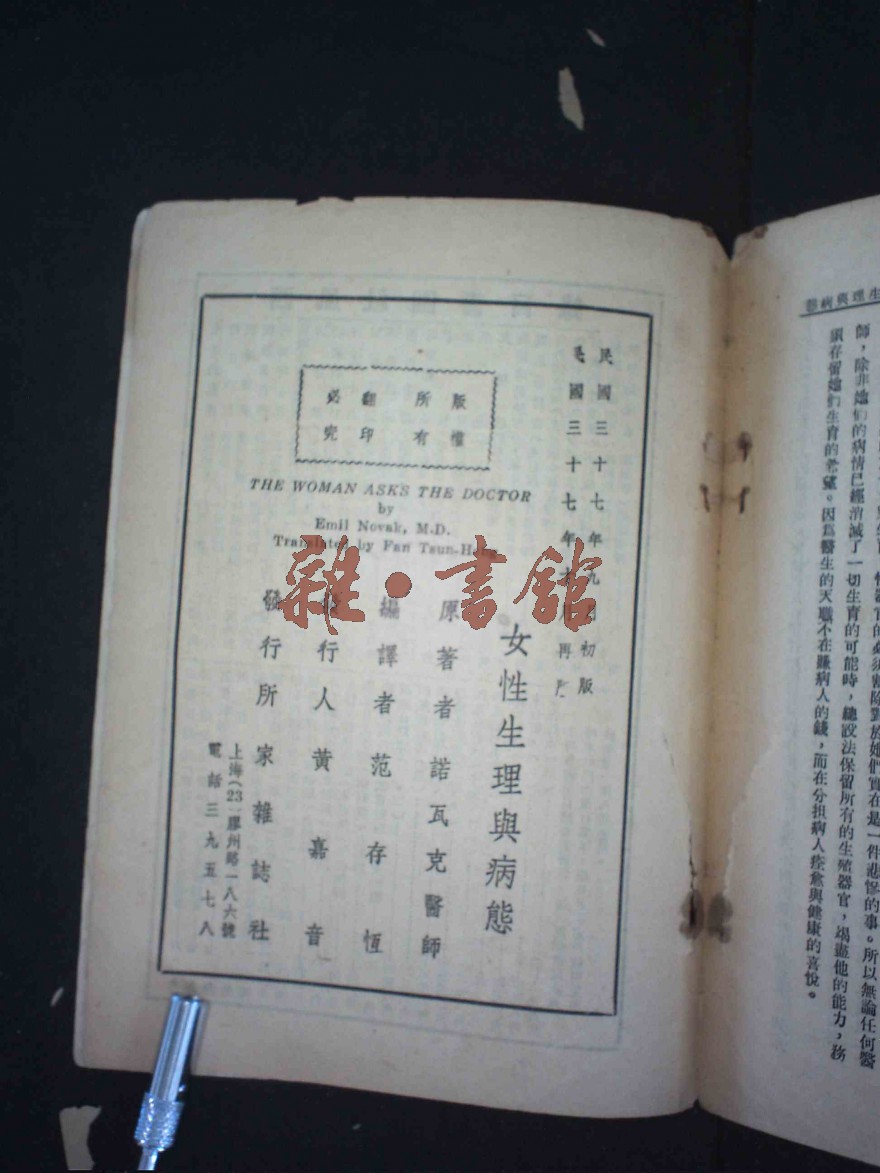 生理與病態
師，除非她们的病情已經消滅了一切生育的可能時，總設法保留所有的生殖器官，竭盡他的能力，務
須存留她们生育的希望。因爲醫生的天職不在賺病人的錢，而在分担病人痊愈與健康的喜悅。
民國三十七年九月初版
民國三十七年 再版
版權所有
翻印必究
THE WOMAN ASKS THE DOCTOR
by
Emil Novak, M.D.
Translated by Fan Tsun-Heng
女性生理與病態
原著者 諾瓦克醫師
編譯者 范存恆
發行人 黃嘉音
發行所 家雜誌社
上海(23)膠州路一八六號
電話三九五七八
雜·書館